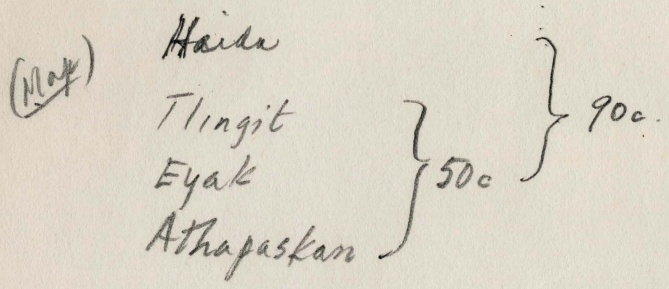 Haida
(Map)
Tlingit
Eyak
Athapaskan
50c
90c.